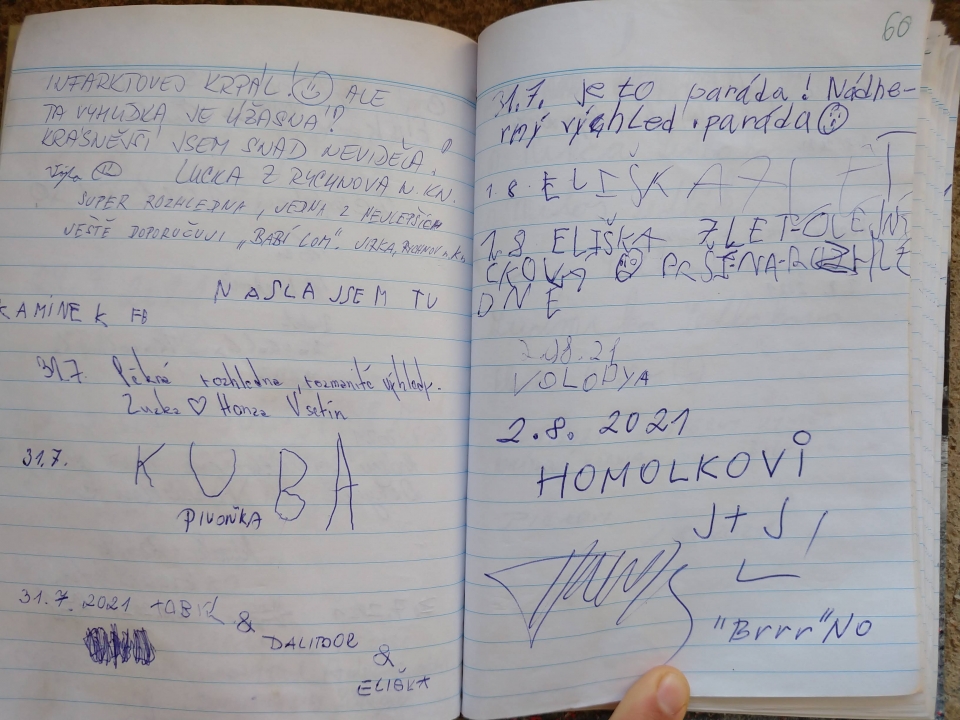 INFARKTOVEJ KRPÁL! ALE
TA VYHLÍDKA JE ÚŽASNÁ!?
KRÁSNĚJŠÍ JSEM SNAD NEVIDĚLA!
LUCKA Z RYCHNOVA N. KN.
SUPER ROZHLEDNA, JEDNA Z NEJLEPŠÍCH
JEŠTĚ DOPORUČUJI "BABÍ LOM". JIRKA, RYCHNOV n. Kn.
NAŠLA JSEM TU
KAMÍNEK FB
31.7. Pěkná rozhledna, rozmanité výhledy.
Zuzka ♡ Honza Vsetín
31.7. KUBA
PIVOŇKA
31.7. 2021 &
DALIBOR
&
ELIŠKA
60
31.7. je to paráda! Nádhe-
rný výhled. paráda
1.8. ELIŠKA 7
1.8. ELIŠKA 7 LET-OLEJNÍ
ČKOVÁ PRŠÍ
DNE
2.08.21
VOLODYA
2.8. 2021
HOMOLKOVI
J + J,
L
"Brrr"NO